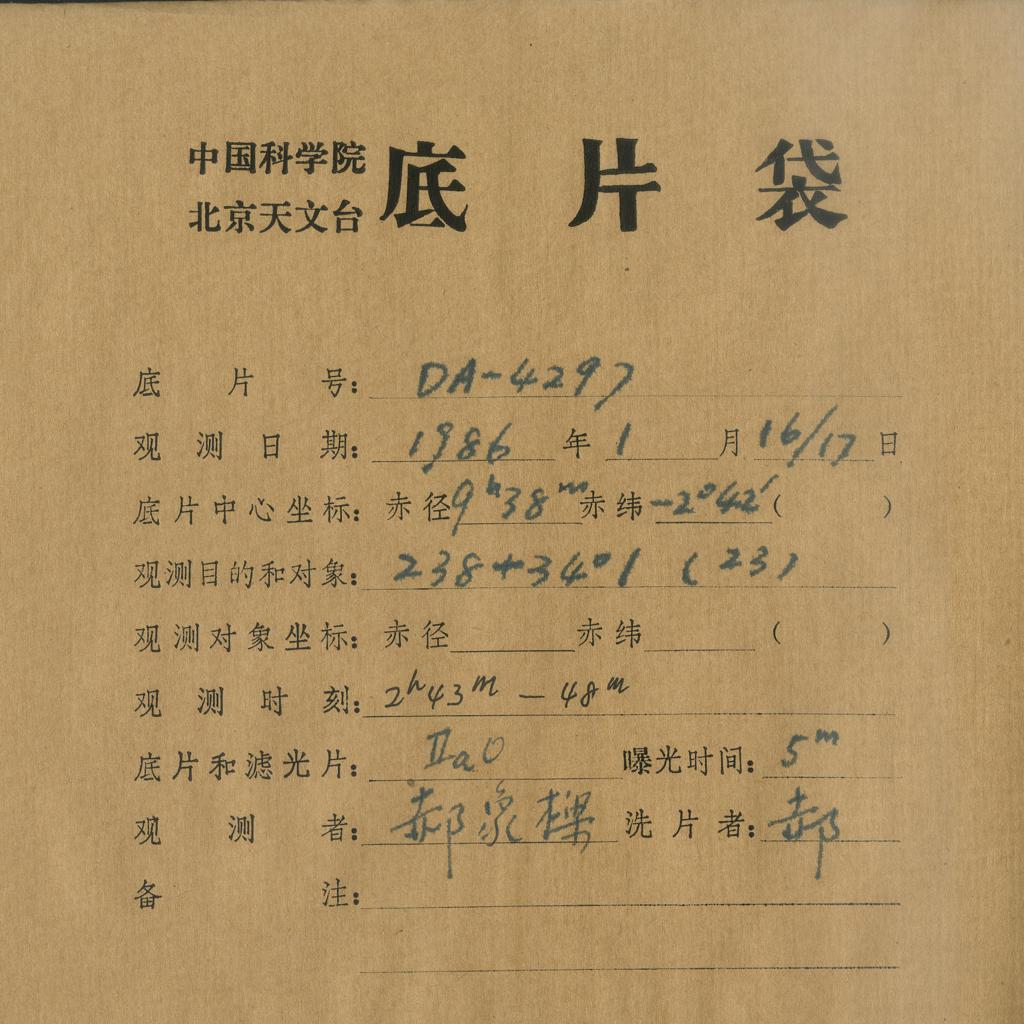 中国科学院
北京天文台
底片袋
底片号: DA-4297
观测日期: 1986年1月16/17日
底片中心坐标: 赤径9ʰ38ᵐ赤纬-2°42′( )
观测目的和对象: 238+3401 (23)
观测对象坐标: 赤径 赤纬 ( )
观测时刻: 2ʰ43ᵐ — 48ᵐ
底片和滤光片: IIaO 曝光时间: 5ᵐ
观测者: 郝象樑 洗片者: 郝
备注: